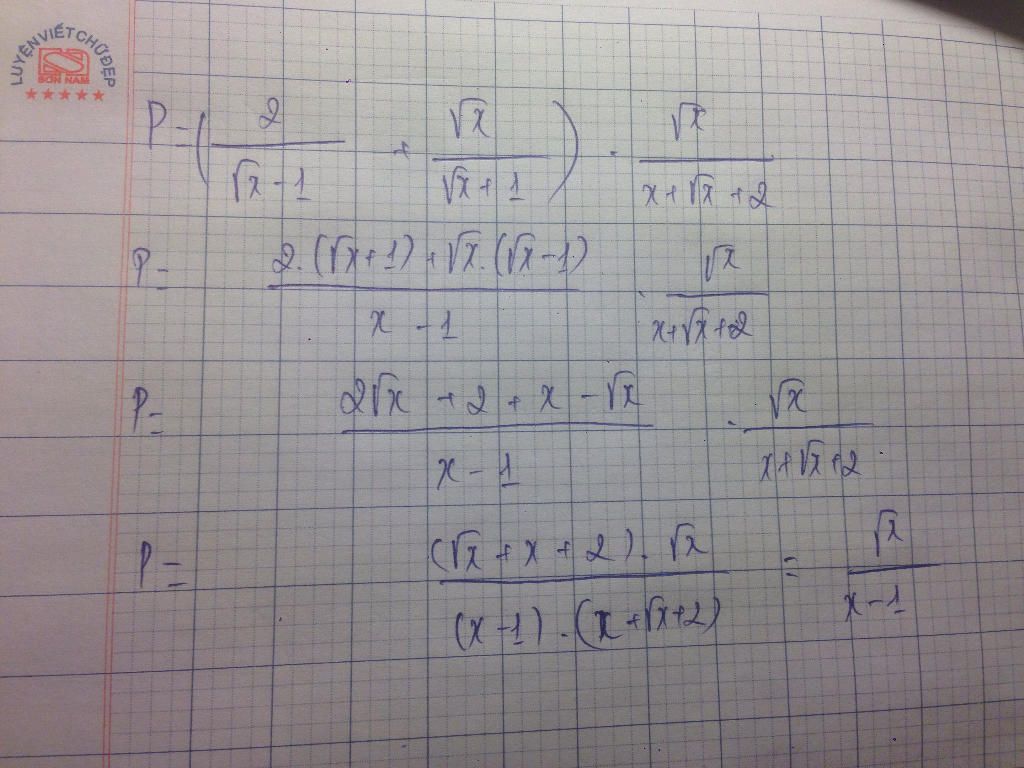 LUYỆN VIẾT CHỮ ĐẸP
SƠN NAM
P = ( 2/(√x - 1) + √x/(√x + 1) ) . √x/(x + √x + 2)
P = (2.(√x + 1) + √x.(√x - 1))/(x - 1) . √x/(x + √x + 2)
P = (2√x + 2 + x - √x)/(x - 1) . √x/(x + √x + 2)
P = ((√x + x + 2) . √x)/((x - 1) . (x + √x + 2)) = √x/(x - 1)